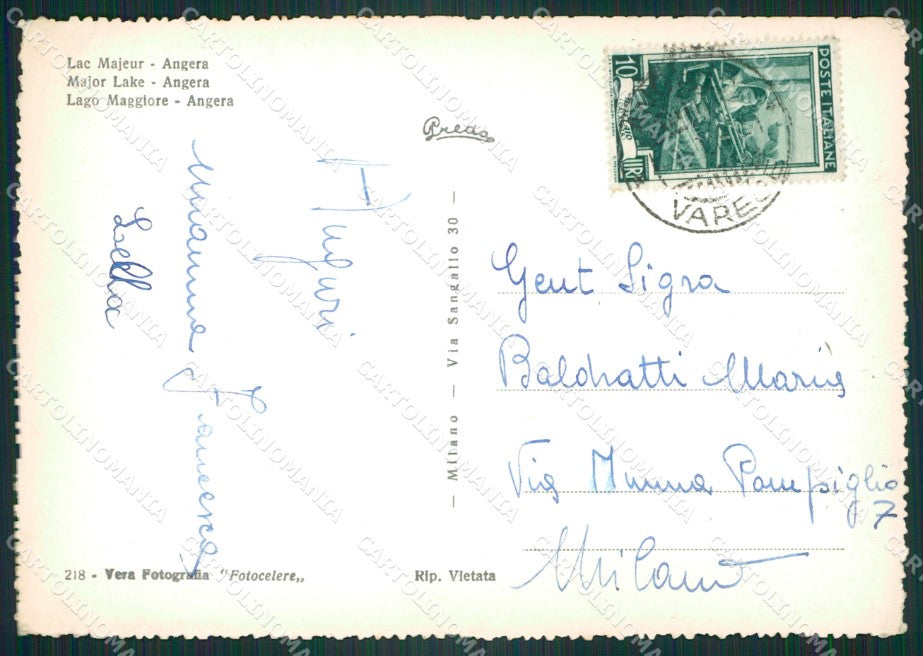 Lac Majeur - Angera
Major Lake - Angera
Lago Maggiore - Angera
POSTE ITALIANE
10
LIRE
VARESE
Auguri
mamma
Lella
— Milano — Via Sangallo 30 —
Gent Sigra
Baldratti Maria
Via Numa Pompiglio
7
Milano
218 - Vera Fotografia "Fotocelere„
Rip. Vietata
CARTOLINOMANIA